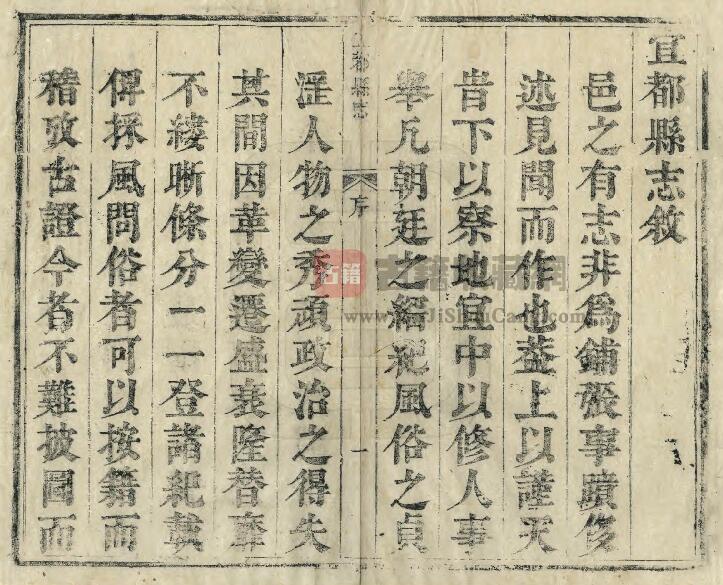 宜都縣志敘
邑之有志非為鋪張事蹟修
述見聞而作也葢上以謹天
旹下以察地宜中以修人事
舉凡朝廷之綱紀風俗之貞
宜都縣志
序
一
淫人物之秀頑政治之得失
其間因革變遷盛衰隆替靡
不縷晰條分一一登諸紀載
俾採風問俗者可以按籍而
稽攷古證今者不難披圖而
古籍
古籍收藏網
www.JiShouCang.com